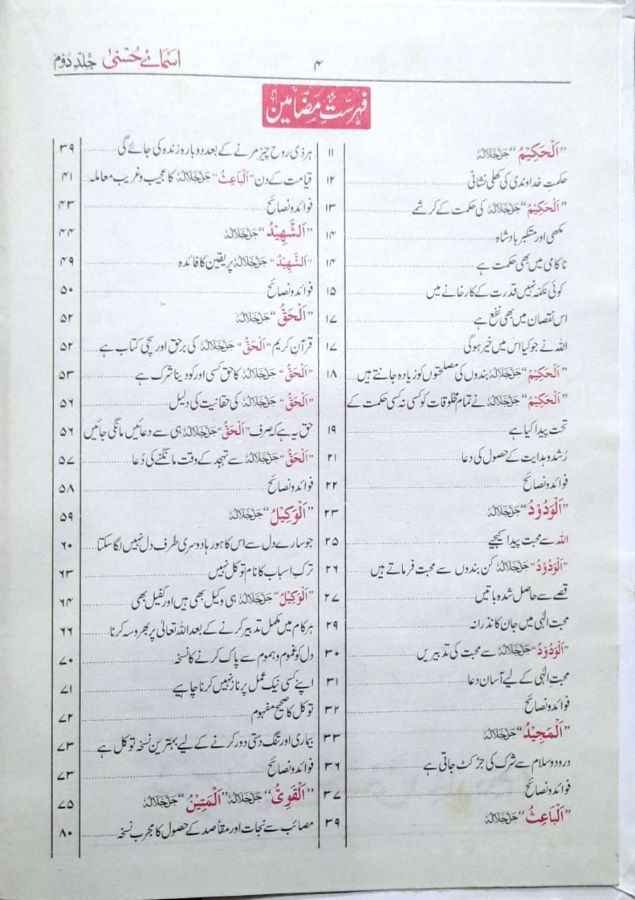 اسمائے حُسنیٰ جلد دوم
۴
فہرستِ مضامین
"اَلْحَكِيْمُ" جل جلالہ ۱۱
حکمتِ خداوندی کی کھلی نشانی ۱۲
"اَلْحَكِيْمُ" جل جلالہ کی حکمت کے کرشمے ۱۳
مکھی اور متکبر بادشاہ ۱۴
ناکامی میں بھی حکمت ہے ۱۴
کوئی نکمّہ نہیں قدرت کے کارخانے میں ۱۵
اس نقصان میں بھی نفع ہے ۱۷
اللہ نے جو کیا اس میں خیر ہوگی ۱۷
"اَلْحَكِيْمُ" جل جلالہ بندوں کی مصلحتوں کو زیادہ جانتے ہیں ۱۸
"اَلْحَكِيْمُ" جل جلالہ نے تمام مخلوقات کو کسی نہ کسی حکمت کے
تحت پیدا کیا ہے ۱۹
رُشد و ہدایت کے حصول کی دعا ۲۱
فوائد و نصائح ۲۲
"اَلْوَدُوْدُ" جل جلالہ ۲۳
اللہ سے محبت پیدا کیجیے ۲۵
"اَلْوَدُوْدُ" جل جلالہ کن بندوں سے محبت فرماتے ہیں ۲۶
قصے سے حاصل شدہ باتیں ۲۷
محبتِ الٰہی میں جان کا نذرانہ ۲۹
"اَلْوَدُوْدُ" جل جلالہ سے محبت کی تدبیریں ۳۰
محبتِ الٰہی کے لیے آسان دعا ۳۱
فوائد و نصائح ۳۲
"اَلْمَجِيْدُ" جل جلالہ ۳۳
درود و سلام سے شرک کی جڑ کٹ جاتی ہے ۳۶
فوائد و نصائح ۳۷
"اَلْبَاعِثُ" جل جلالہ ۳۹
ہر ذی روح چیز مرنے کے بعد دوبارہ زندہ کی جائے گی ۳۹
قیامت کے دن "اَلْبَاعِثُ" جل جلالہ کا عجیب و غریب معاملہ ۴۱
فوائد و نصائح ۴۳
"اَلشَّهِيْدُ" جل جلالہ ۴۴
"اَلشَّهِيْدُ" جل جلالہ پر یقین کا فائدہ ۴۹
فوائد و نصائح ۵۰
"اَلْحَقُّ" جل جلالہ ۵۲
قرآن کریم "اَلْحَقُّ" جل جلالہ کی برحق اور سچی کتاب ہے ۵۲
"اَلْحَقُّ" جل جلالہ کا حق کسی اور کو دینا شرک ہے ۵۳
"اَلْحَقُّ" جل جلالہ کی حقانیت کی دلیل ۵۶
حق یہ ہے کہ صرف "اَلْحَقُّ" جل جلالہ ہی سے دعائیں مانگی جائیں ۵۶
"اَلْحَقُّ" جل جلالہ سے تہجد کے وقت مانگنے کی دُعا ۵۷
فوائد و نصائح ۵۸
"اَلْوَكِيْلُ" جل جلالہ ۵۹
جو سارے دل سے اس کا ہو رہا دوسری طرف دل نہیں لگا سکتا ۶۰
ترکِ اسباب کا نام توکل نہیں ۶۳
"اَلْوَكِيْلُ" جل جلالہ ہی وکیل بھی ہیں اور کفیل بھی ۶۴
ہر کام میں مکمل تدبیر کرنے کے بعد اللہ تعالیٰ پر بھروسہ کرنا ۶۶
دل کو غموم و ہموم سے پاک کرنے کا نسخہ ۷۰
اپنے کسی نیک عمل پر ناز نہیں کرنا چاہیے ۷۱
توکل کا صحیح مفہوم ۷۲
بیماری اور تنگ دستی دور کرنے کے لیے بہترین نسخہ توکل ہے ۷۳
فوائد و نصائح ۷۳
"اَلْقَوِيُّ" جل جلالہ "اَلْمَتِيْنُ" جل جلالہ ۷۵
مصائب سے نجات اور مقاصد کے حصول کا مجرب نسخہ ۸۰